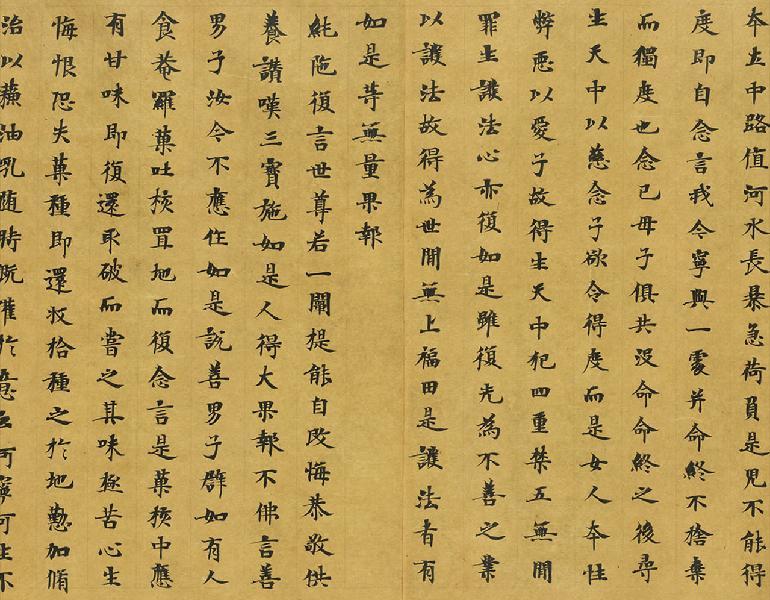 本立中路值河水長暴急荷負是兒不能得
度即自念言我今寧與一處并命終不捨棄
而獨度也念已母子俱共没命命終之後尋
生天中以慈念子欲令得度而是女人本性
弊惡以愛子故得生天中犯四重禁五無間
罪生護法心亦復如是雖復先為不善之業
以護法故得為世間無上福田是護法者有
如是等無量果報
純陁復言世尊若一闡提能自改悔恭敬供
養讚嘆三寶施如是人得大果報不佛言善
男子汝今不應住如是説善男子辟如有人
食菴羅菓吐核置地而復念言是菓核中應
有甘味即復還取破而嘗之其味極苦心生
悔恨恐失菓種即還收拾種之於地懃加脩
治以蘓油乳随時溉灌於意云何寧可生不